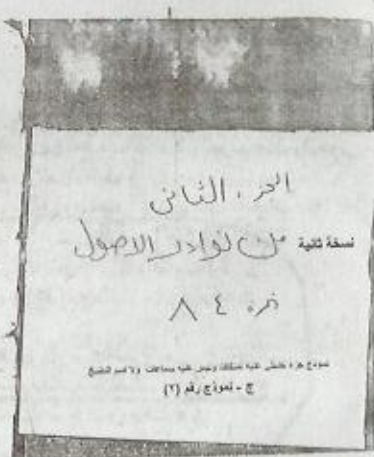 الجزء الثاني
نسخة ثانية من نوادر الاصول
نمرة ٨٤
نموذج جزء خطي عليه تملك وليس عليه سماعات ولا اسم الناسخ
ج - نموذج رقم (٢)